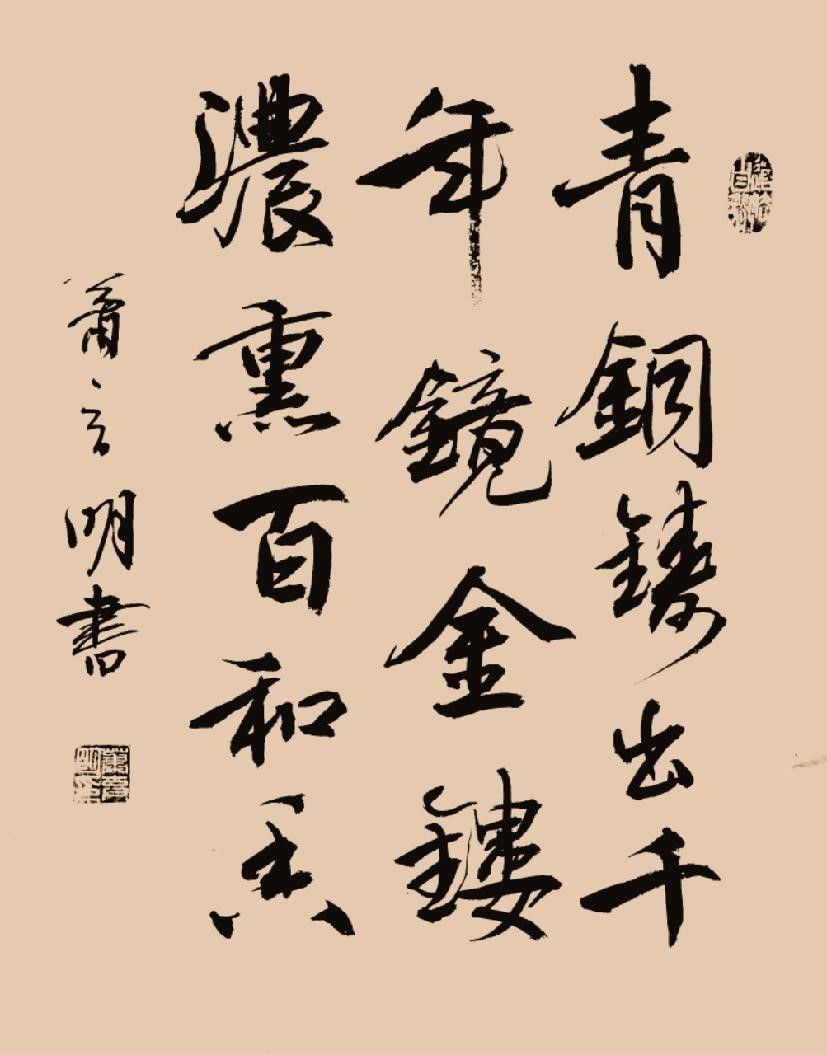 青銅鑄出千
年鏡金鏤
濃熏百和香
蕭言明書